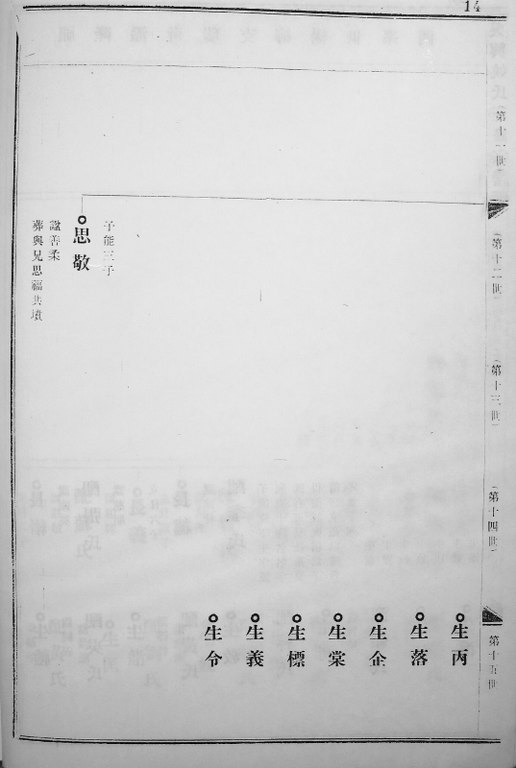 14
第十一世
(第十二世)
(第十三世)
(第十四世)
第十五世
子能三子
思敬
諡善柔
葬與兄思福共墳
生丙
生落
生企
生棠
生標
生義
生令